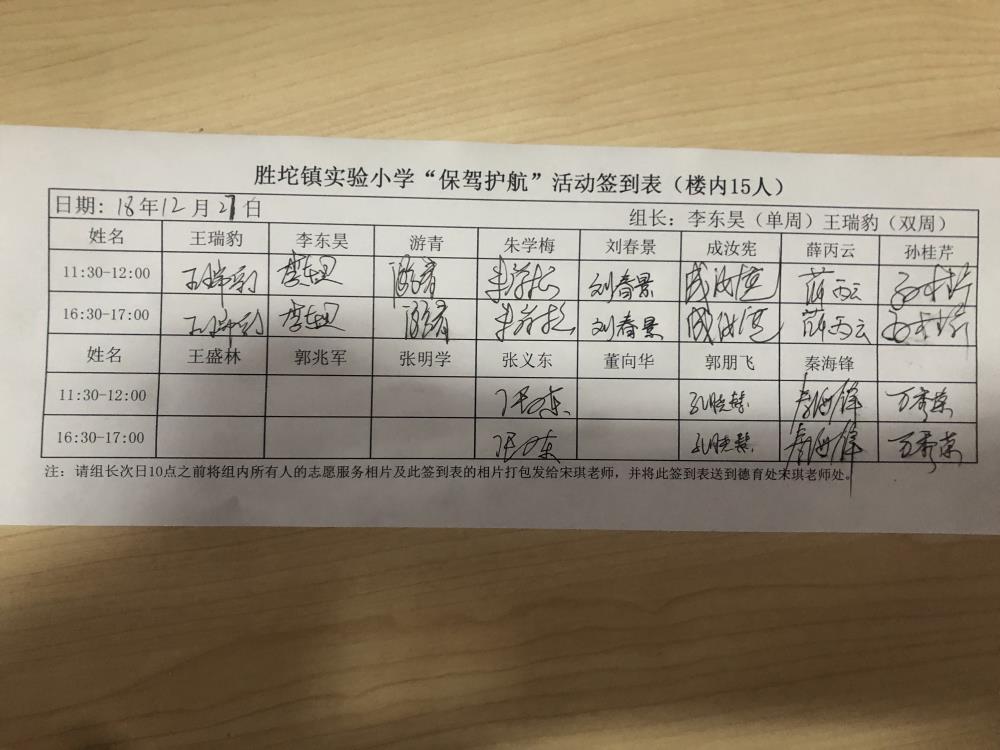 胜坨镇实验小学“保驾护航”活动签到表（楼内15人）
日期: 18年12月27日 组长: 李东昊（单周）王瑞豹（双周）
姓名 王瑞豹 李东昊 游青 朱学梅 刘春景 成汝宪 薛丙云 孙桂芹
11:30-12:00 王瑞豹 李东昊 游青 朱学梅 刘春景 成汝宪 薛丙云 孙桂芹
16:30-17:00 王瑞豹 李东昊 游青 朱学梅 刘春景 成汝宪 薛丙云 孙桂芹
姓名 王盛林 郭兆军 张明学 张义东 董向华 郭朋飞 秦海锋
11:30-12:00 张义东 孔晓慧 秦海锋 万秀荣
16:30-17:00 张义东 孔晓慧 秦海锋 万秀荣
注: 请组长次日10点之前将组内所有人的志愿服务相片及此签到表的相片打包发给宋琪老师，并将此签到表送到德育处宋琪老师处。